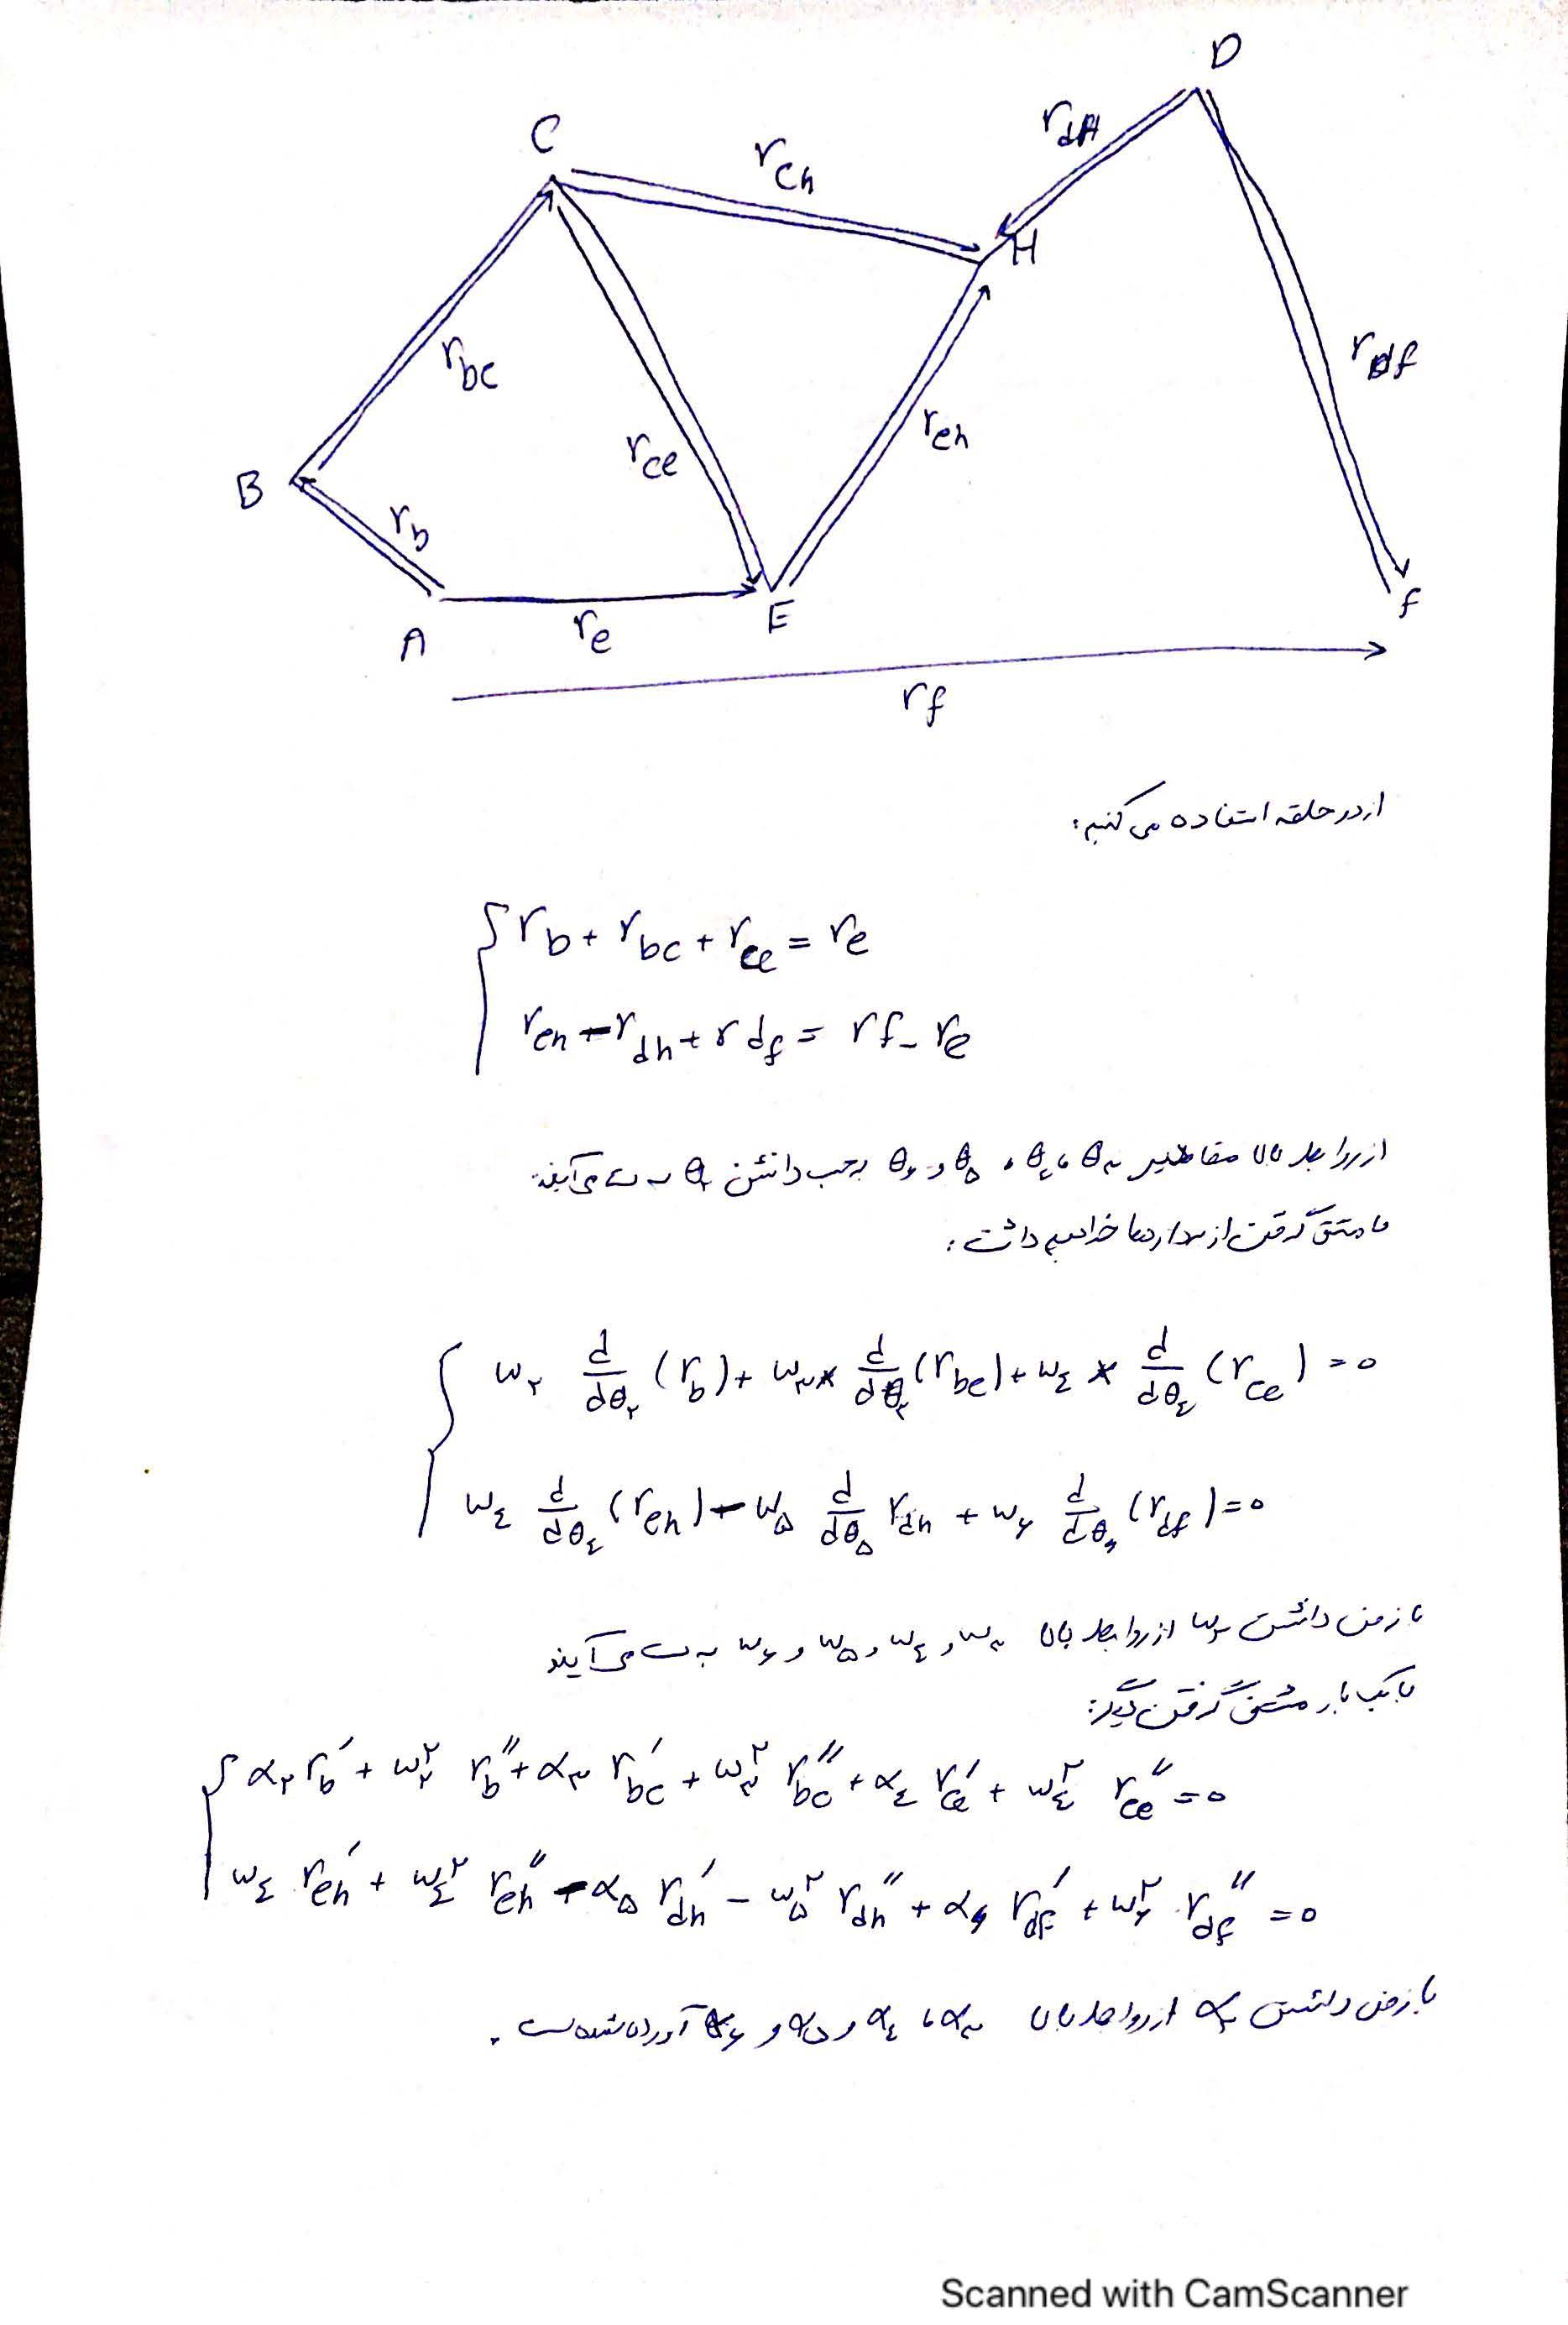 D
C
r_dH
r_ch
H
r_bc
r_Df
r_ce
r_eh
B
r_b
A
r_e
E
f
r_f
از دو حلقه استفاده می کنیم:
r_b + r_bc + r_ce = r_e
r_eh - r_dh + r_df = r_f - r_e
از روابط بالا مقادیر θ_۳ ، θ_۴ ، θ_۵ و θ_۶ برحسب دانستن θ_۲ بدست می آیند.
با مشتق گرفتن از بردارها خواهیم داشت:
ω_۲ d/dθ_۲ (r_b) + ω_۳ * d/dθ_۳ (r_bc) + ω_٤ * d/dθ_٤ (r_ce) = 0
ω_٤ d/dθ_٤ (r_eh) - ω_۵ d/dθ_۵ r_dh + ω_۶ d/dθ_۶ (r_df) = 0
با فرض دانستن ω_۲ از روابط بالا ω_۳ و ω_٤ و ω_۵ و ω_۶ بدست می آیند
با یک بار مشتق گرفتن دیگر:
α_۲ r_b' + ω_۲^۲ r_b'' + α_۳ r_bc' + ω_۳^۲ r_bc'' + α_٤ r_ce' + ω_٤^۲ r_ce'' = 0
ω_٤ r_eh' + ω_٤^۲ r_eh'' - α_۵ r_dh' - ω_۵^۲ r_dh'' + α_۶ r_df' + ω_۶^۲ r_df'' = 0
با فرض دانستن α_۲ از روابط بالا α_۳ ، α_٤ و α_۵ و α_۶ آورده شده است.
Scanned with CamScanner